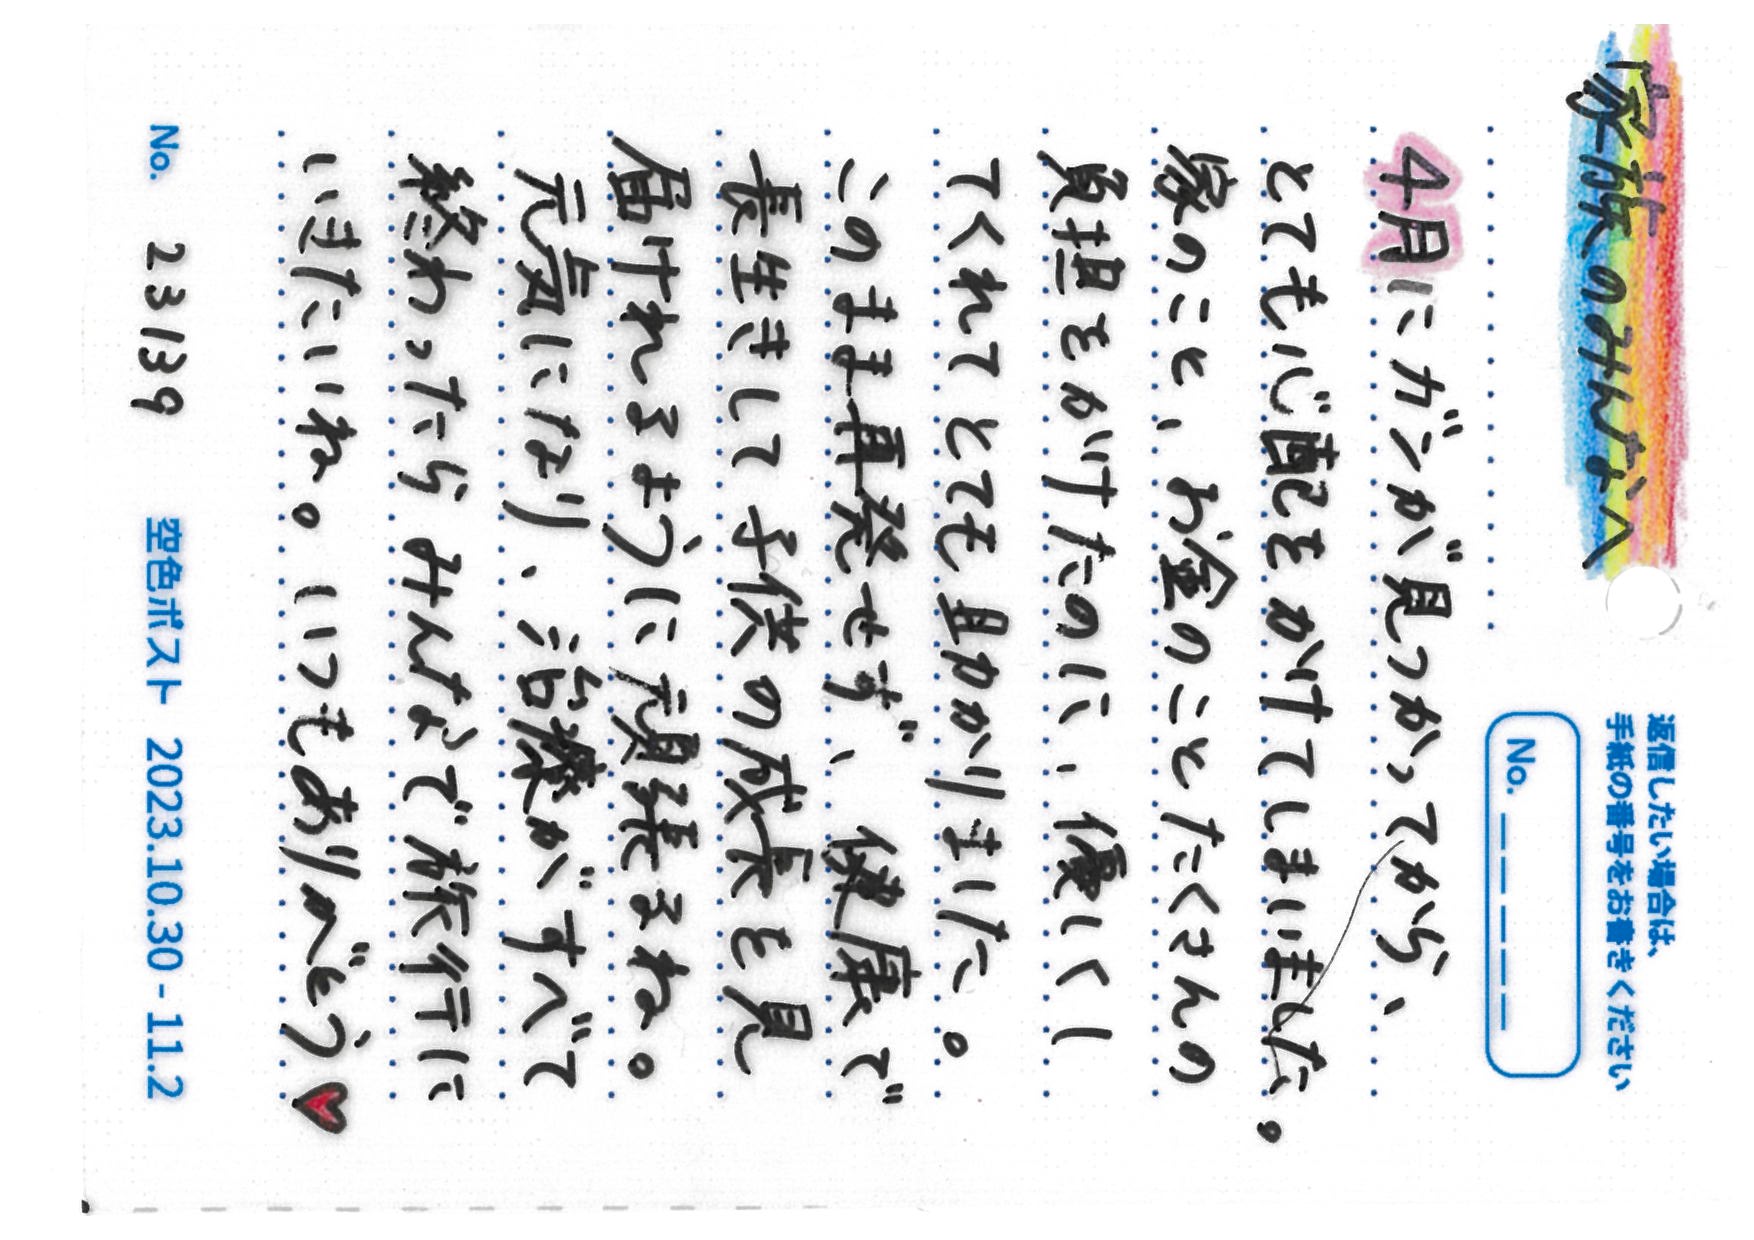 家族のみんなへ
返信したい場合は、
手紙の番号をお書きください
No. _ _ _ _ _
4月にガンが見つかってから、
とても心配をかけてしまいました。
家のこと、お金のことたくさんの
負担をかけたのに、優しくし
てくれてとても助かりました。
このまま再発せず、健康で
長生きして子供の成長を見
届けれるように頑張るね。
元気になり、治療がすべて
終わったらみんなで旅行に
いきたいね。いつもありがとう♥
No. 23139
空色ポスト 2023.10.30 - 11.2